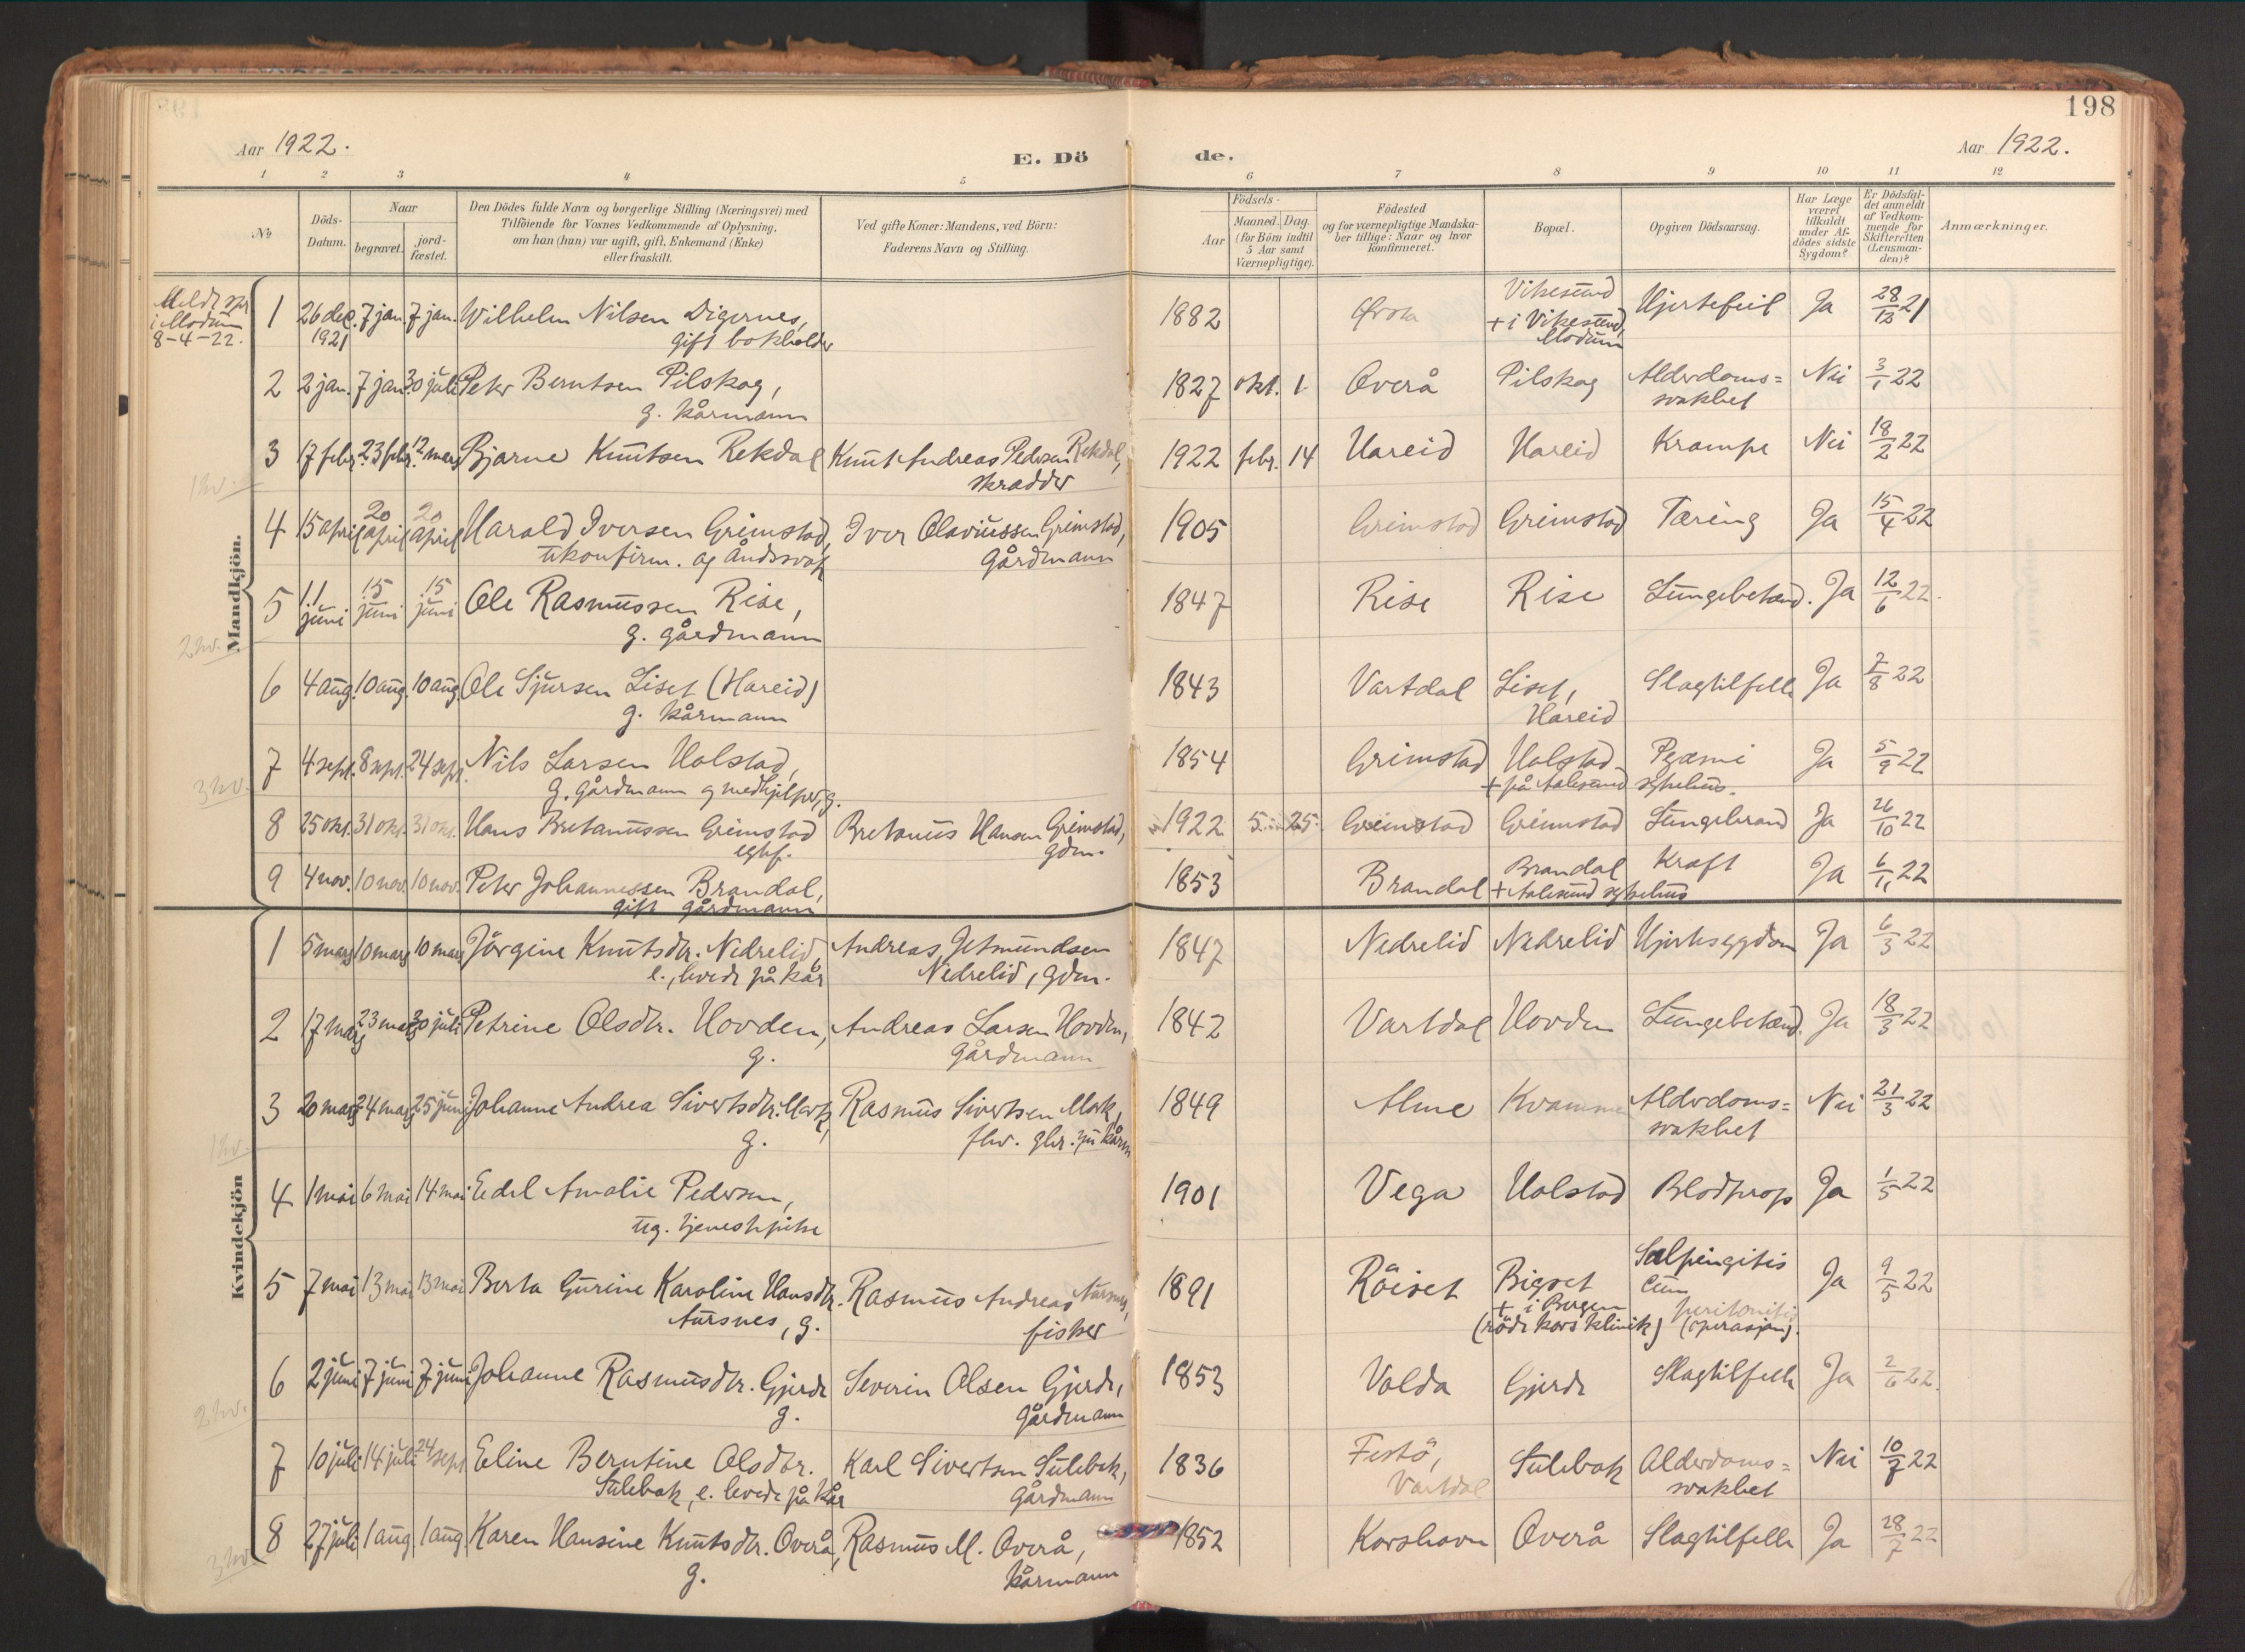 198
Aar 1922.
E. Dö
de.
Aar 1922.
1 2 3 4 5 6 7 8 9 10 11 12
No
Döds-Datum.
Naar
begravet.
jord-fæstet.
Den Dödes fulde Navn og borgerlige Stilling (Næringsvei) med
Tilföiende for Voxnes Vedkommende af Oplysning,
om han (hun) var ugift, gift, Enkemand (Enke)
eller fraskilt.
Ved gifte Koner: Mandens, ved Börn:
Faderens Navn og Stilling.
Födsels-
Aar
Maaned. Dag.
(for Börn indtil
5 Aar samt
Værnepligtige).
Födested
og for værnepligtige Mandska-
ber tillige: Naar og hvor
konfirmeret.
Bopæl.
Opgiven Dödsaarsag.
Har Læge
været
tilkaldt
under Af-
dödes sidste
Sygdom?
Er Dödsfal-
det anmeldt
af Vedkom-
mende for
Skifteretten
(Lensman-
den)?
Anmærkninger.
Mandkjön.
Meldt
i Modum
8-4-22.
1 26 dec. 7 jan. 7 jan. Wilhelm Nilsen Digernes, 1882 Vikesund Hjertefeil Ja 28/12 21
1921 gift bokholder + i Vikesund, Modum
2 2 jan. 7 jan. 30 juli Peter Berntsen Pilskog, 1827 okt. 1. Overå Pilskog Alderdoms= Nei 3/1 22
g. kårmann svakhet
3 17 febr. 23 febr. 12 mars Bjarne Knutsen Rekdal Knut Andreas Pedersen Rekdal, 1922 febr. 14 Hareid Hareid Krampe Nei 18/2 22
skrædder
1 hv.
4 15 april 20 april 20 april Harald Iversen Grimstad, Iver Olaviussen Grimstad, 1905 Grimstad Grimstad Tæring Ja 15/4 22
ukonfirm. og åndssvak gårdmann
5 11 juni 15 juni 15 juni Ole Rasmussen Rise, 1847 Rise Rise Lungebetænd. Ja 12/6 22.
g. gårdmann
2 hv.
6 4 aug. 10 aug. 10 aug. Ole Sjursen Liset (Hareid) 1843 Vartdal Liset, Slagtilfelle Ja /8 22
g. kårmann Hareid
7 4 sept. 8 sept. 24 sept. Nils Larsen Holstad, 1854 Grimstad Holstad Pyæmi Ja 5/9 22
g. gårdmann og medhjelper, g. + på Aalesund sykehus.
3 hv.
8 25 okt. 31 okt. 31 okt. Hans Bretanussen Grimstad Bretanus Hansen Grimstad, 1922 5 25 Grimstad Grimstad Lungebrand Ja 26/10 22
gdm.
9 4 nov. 10 nov. 10 nov. Peter Johannessen Brandal, 1853 Brandal Brandal Kræft Ja 6/11 22
gift gårdmann + Aalesund sykehus
Kvindekjön
1 5 mars 10 mars 10 mars Jörgine Knutsdtr. Nedrelid, Andreas Jetmundsen 1847 Nedrelid Nedrelid Hjertesygdom Ja 6/3 22
e., levde på kår Nedrelid, gdm.
2 17 mars 23 mars 30 juli Petrine Olsdtr. Hovden, Andreas Larsen Hovden, 1842 Vartdal Hovden Lungebetænd. Ja 18/3 22
g. gårdmann
3 20 mars 24 mars 25 juni Johanne Andrea Sivertsdtr. Mork, Rasmus Sivertsen Mork, 1849 Alme Kvamme Alderdoms= Nei 21/3 22
g. svakhet
1 hv.
4 1 mai 6 mai 14 mai Edel Amalie Pedersen, 1901 Vega Holstad Blodprop Ja 1/5 22
ug. tjenestepike
5 7 mai 13 mai 13 mai Berta Gurine Karoline Hansdtr. Rasmus Andreas Aursnes, 1891 Röiset Bigset Salpingitis Ja 9/5 22
Aursnes, g. fisker + i Bergen cum peritonitis
(röde kors klinik) (operasjon).
6 2 juni 7 juni 7 juni Johanne Rasmusdtr. Gjerde Severin Olsen Gjerde, 1853 Volda Gjerde Slagtilfelle Ja 2/6 22.
g. gårdmann
2 hv.
7 10 juli 14 juli 24 sept. Eline Berntine Olsdtr. Karl Sivertsen Sulebak, 1836 Festö, Sulebak Alderdoms= Nei 10/7 22
Sulebak, e. levde på kår gårdmann Vartdal svakhet
8 27 juli 1 aug. 1 aug. Karen Hansine Knutsdtr. Overå, Rasmus M. Overå, 1852 Korshavn Overå Slagtilfelle Ja 28/7 22
g. kårmann
3 hv.